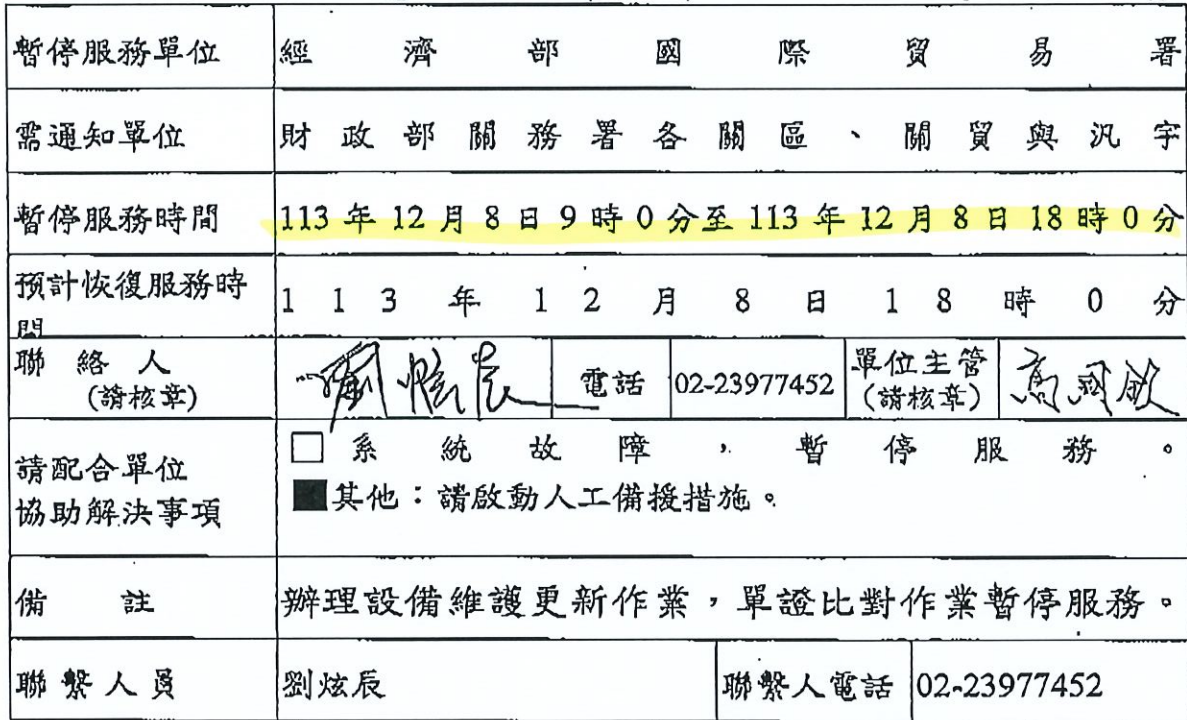 暫停服務單位 經濟部國際貿易署
需通知單位 財政部關務署各關區、關貿與汎宇
暫停服務時間 113 年 12 月 8 日 9 時 0 分至 113 年 12 月 8 日 18 時 0 分
預計恢復服務時
間
113年12月8日18時0分
聯絡人
(請核章)
劉炫辰
電話 02-23977452
單位主管
(請核章)
請配合單位
協助解決事項
□系統故障,暫停服務。
■其他:請啟動人工備援措施。
備註 辦理設備維護更新作業,單證比對作業暫停服務。
聯繫人員 劉炫辰 聯繫人電話 02-23977452